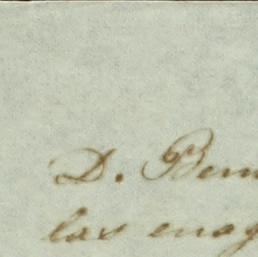 D. Bern
las enag